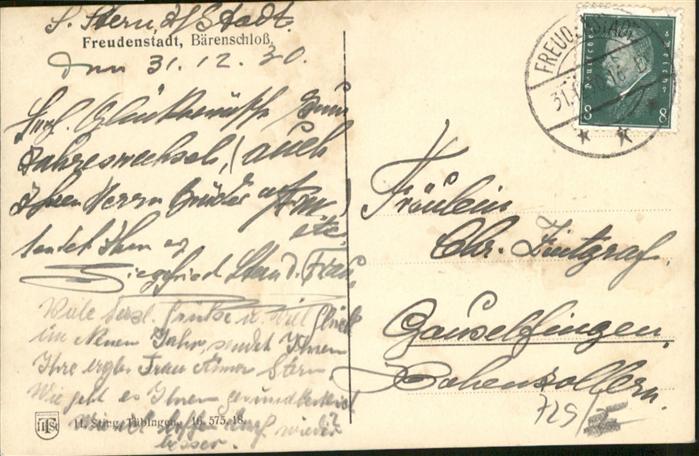 S. Stern, d/Stadt.
Freudenstadt, Bärenschloß.
den 31.12.30.
Herzl. Glückwünsche zum
Jahreswechsel, (auch
Ihrem Herrn Bruder
etc.
sendet Ihnen
Siegfried Stern u. Frau
Viele herzl. Grüße u. viel Glück
im Neuen Jahr, sendet Ihnen
Ihre ergb. Frau Stern.
Wie geht es Ihnen gesundheitlich
Wir hoffen wieder
besser.
H. Sting, Tübingen. 16 575, 18.
HST
FREUDENSTADT
31.
Deutsches Reich
8 8
Fräulein
Chr. Zintgraf.
Gauselfingen
Hohenzollern.
729/